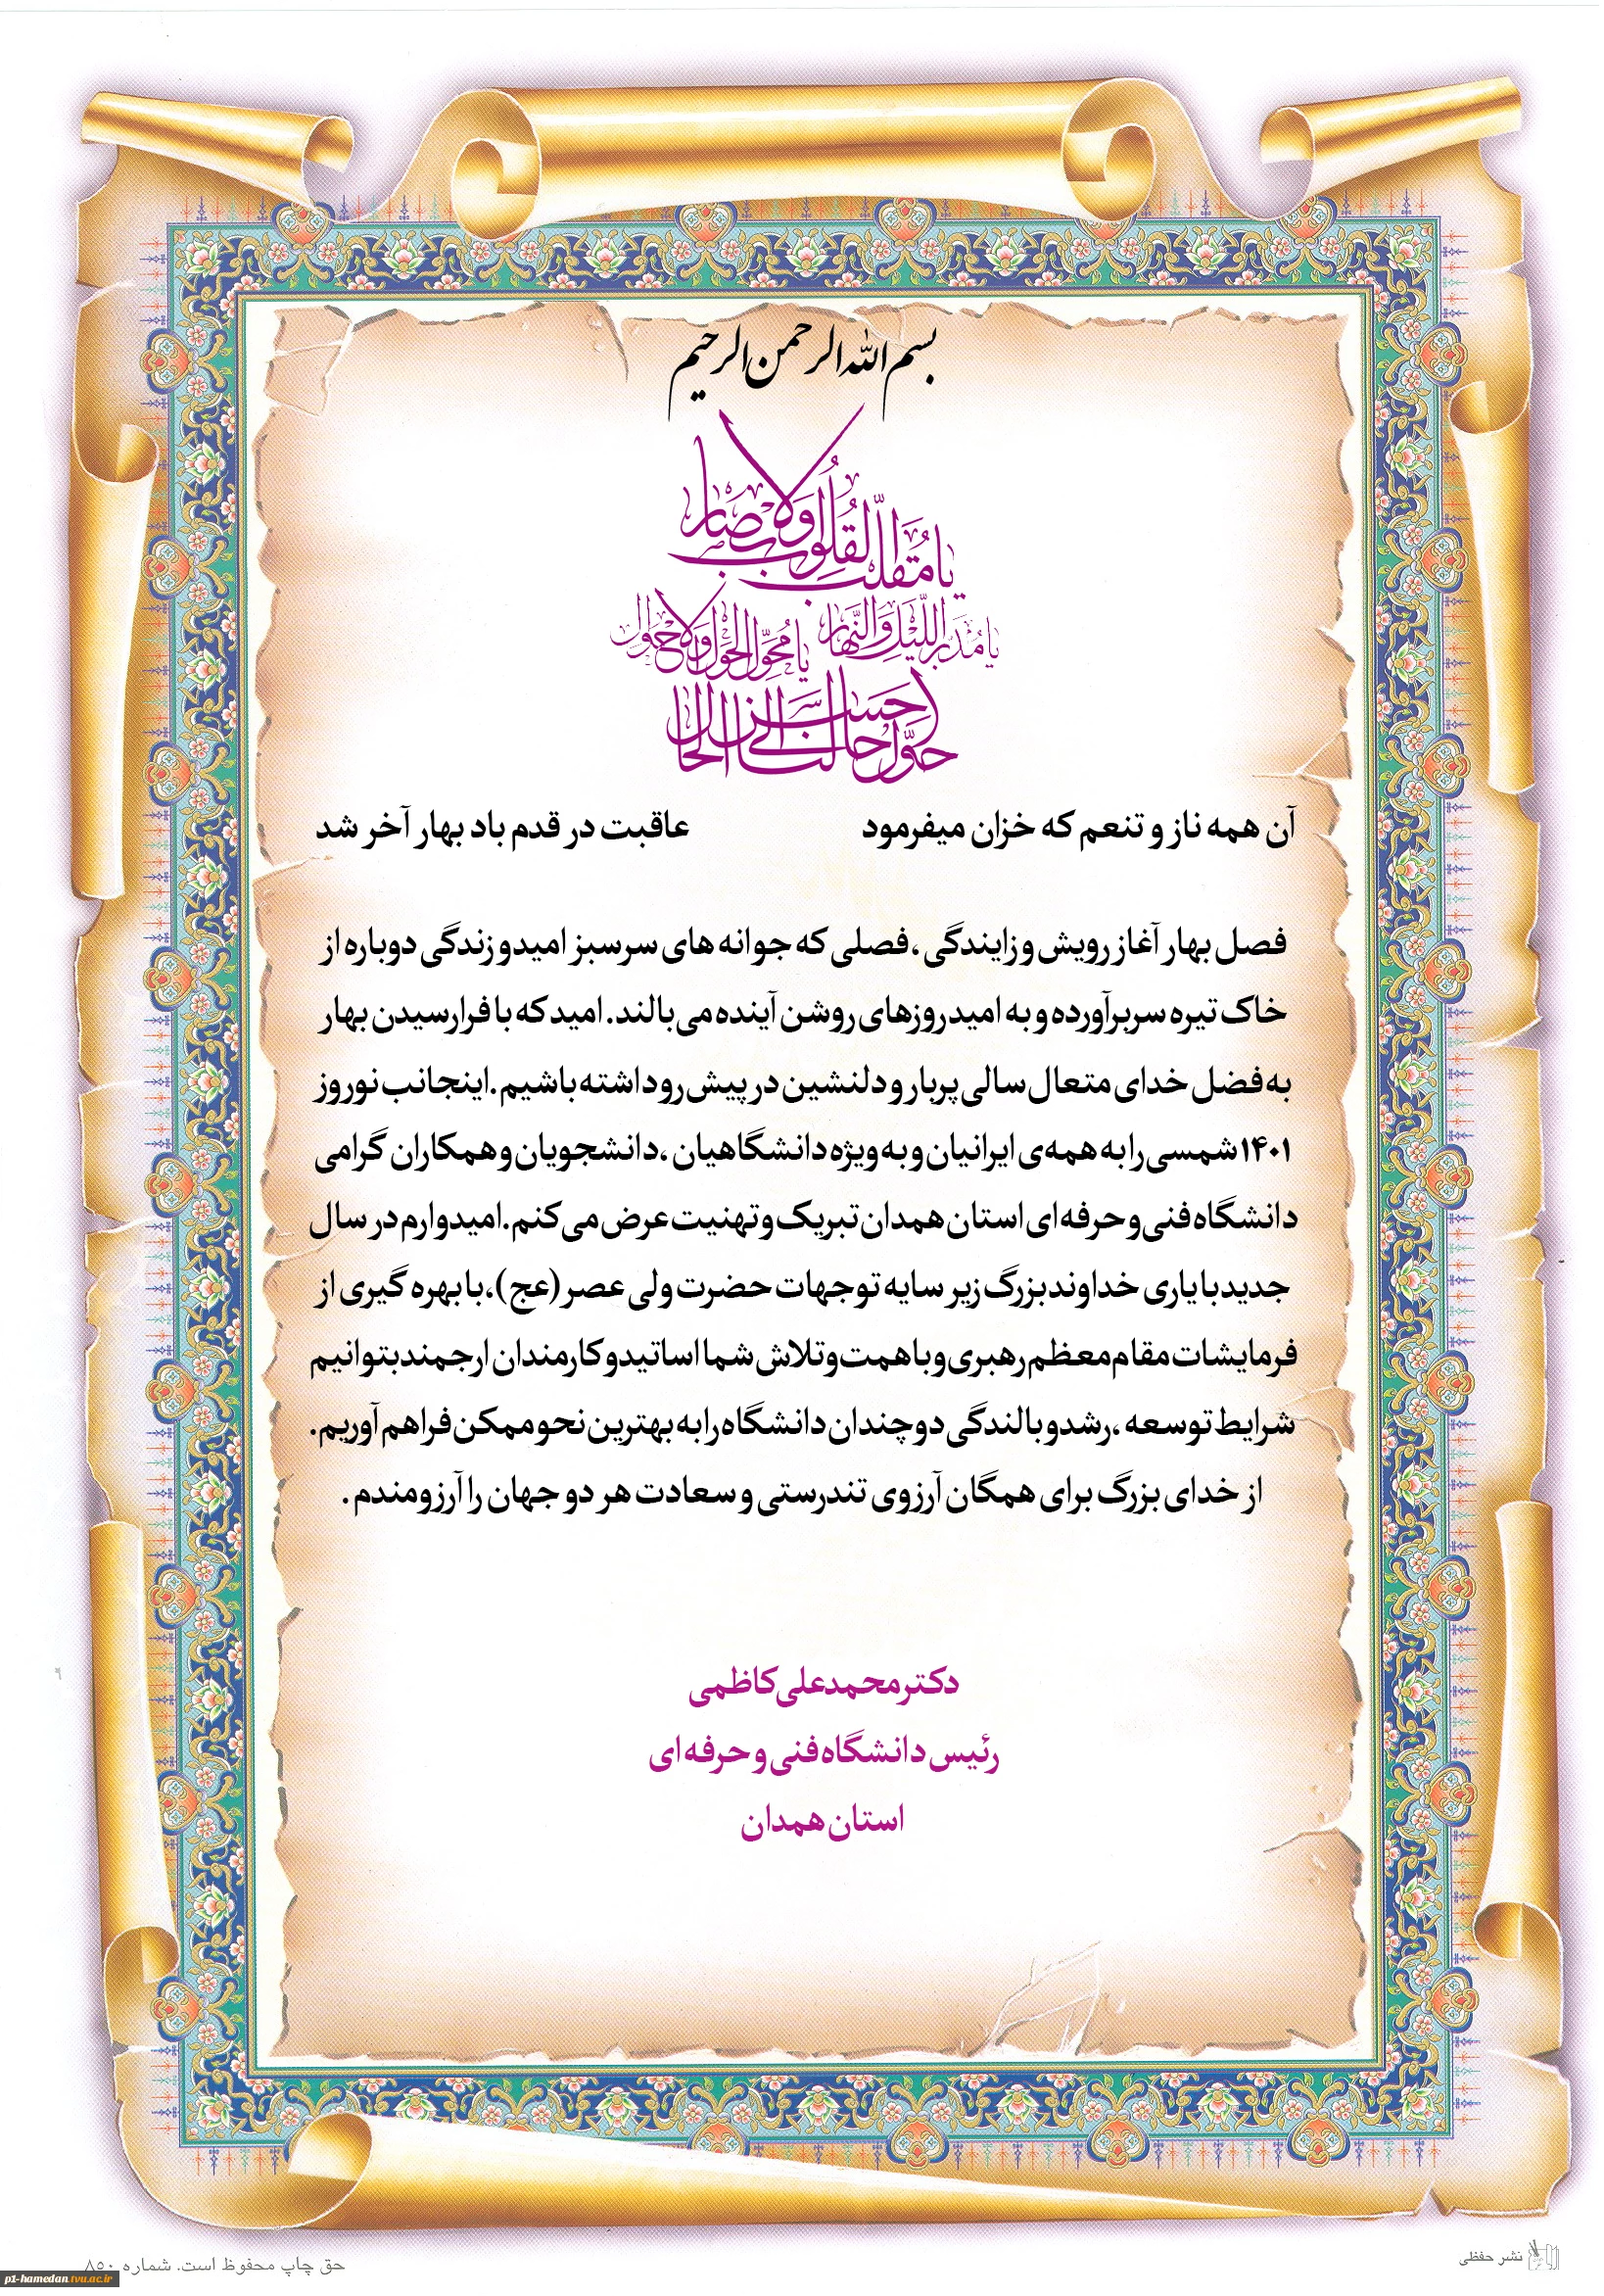 بسم الله الرحمن الرحیم
یا مُقَلِّبَ القُلُوبِ وَالاَبصار
یا مُدَبِّرَ اللَّیلِ وَالنَّهار
یا مُحَوِّلَ الحَولِ وَالاَحوال
حَوِّل حالَنا اِلی اَحسَنِ الحال
آن همه ناز و تنعم که خزان میفرمود عاقبت در قدم باد بهار آخر شد
فصل بهار آغاز رویش و زایندگی ،فصلی که جوانه های سرسبز امید و زندگی دوباره از
خاک تیره سر برآورده و به امید روزهای روشن آینده می‌بالند. امید که با فرارسیدن بهار
به فضل خدای متعال سالی پربار و دلنشین در پیش رو داشته باشیم. اینجانب نوروز
۱۴۰۱ شمسی را به همه‌ی ایرانیان و به ویژه دانشگاهیان ،دانشجویان و همکاران گرامی
دانشگاه فنی و حرفه ای استان همدان تبریک و تهنیت عرض می‌کنم. امیدوارم در سال
جدید با یاری خداوند بزرگ زیر سایه توجهات حضرت ولی عصر (عج)، با بهره گیری از
فرمایشات مقام معظم رهبری و با همت و تلاش شما اساتید و کارمندان ارجمند بتوانیم
شرایط توسعه ،رشد و بالندگی دو چندان دانشگاه را به بهترین نحو ممکن فراهم آوریم.
از خدای بزرگ برای همگان آرزوی تندرستی و سعادت هر دو جهان را آرزومندم .
دکتر محمدعلی کاظمی
رئیس دانشگاه فنی و حرفه ای
استان همدان
نشر حفظی
حق چاپ محفوظ است. شماره ۸۵۰
p1-hamedan.tvu.ac.ir